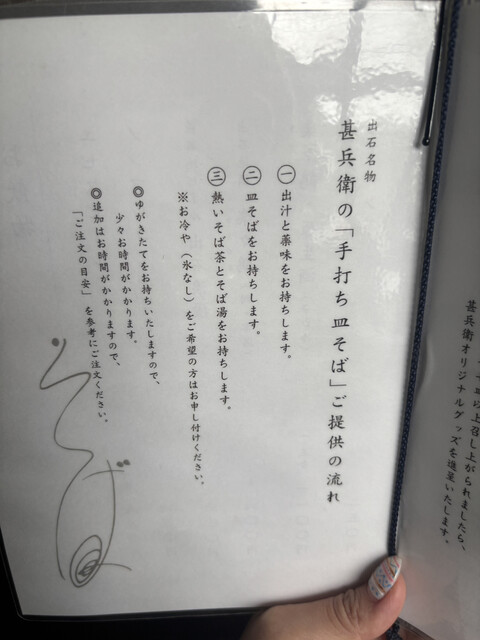 出石名物
甚兵衛の「手打ち皿そば」ご提供の流れ
㊀出汁と薬味をお持ちします。
㊁皿そばをお持ちします。
㊂熱いそば茶とそば湯をお持ちします。
※お冷や（氷なし）をご希望の方はお申し付けください。
◎ゆがきたてをお持ちいたしますので、
少々お時間がかかります。
◎追加はお時間がかかりますので、
「ご注文の目安」を参考にご注文ください。
そば
上召し上がられましたら、
甚兵衛オリジナルグッズを進呈いたします。